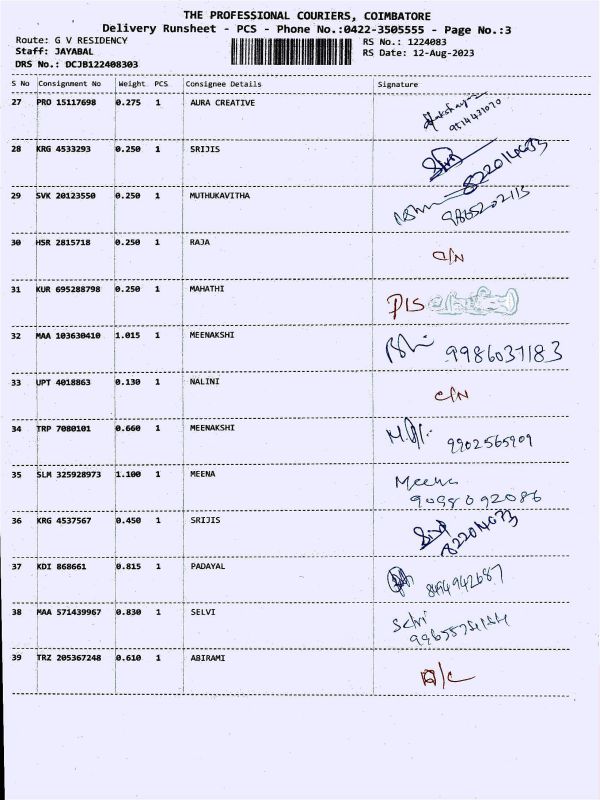 THE PROFESSIONAL COURIERS, COIMBATORE
Delivery Runsheet - PCS - Phone No.:0422-3505555 - Page No.:3
Route: G V RESIDENCY
RS No.: 1224083
Staff: JAYABAL
RS Date: 12-Aug-2023
DRS No.: DCJB122408303
S No Consignment No Weight PCS Consignee Details Signature
27 PRO 15117698 0.275 1 AURA CREATIVE
28 KRG 4533293 0.250 1 SRIJIS
29 SVK 20123550 0.250 1 MUTHUKAVITHA
9865202113
30 HSR 2815718 0.250 1 RAJA
31 KUR 695288798 0.250 1 MAHATHI
32 MAA 103630410 1.015 1 MEENAKSHI
9986037183
33 UPT 4018863 0.130 1 NALINI
34 TRP 7080101 0.660 1 MEENAKSHI
9902565909
35 SLM 325928973 1.100 1 MEENA Meena
36 KRG 4537567 0.450 1 SRIJIS
37 KDI 868661 0.815 1 PADAYAL
38 MAA 571439967 0.830 1 SELVI Selvi
39 TRZ 205367248 0.610 1 ABIRAMI